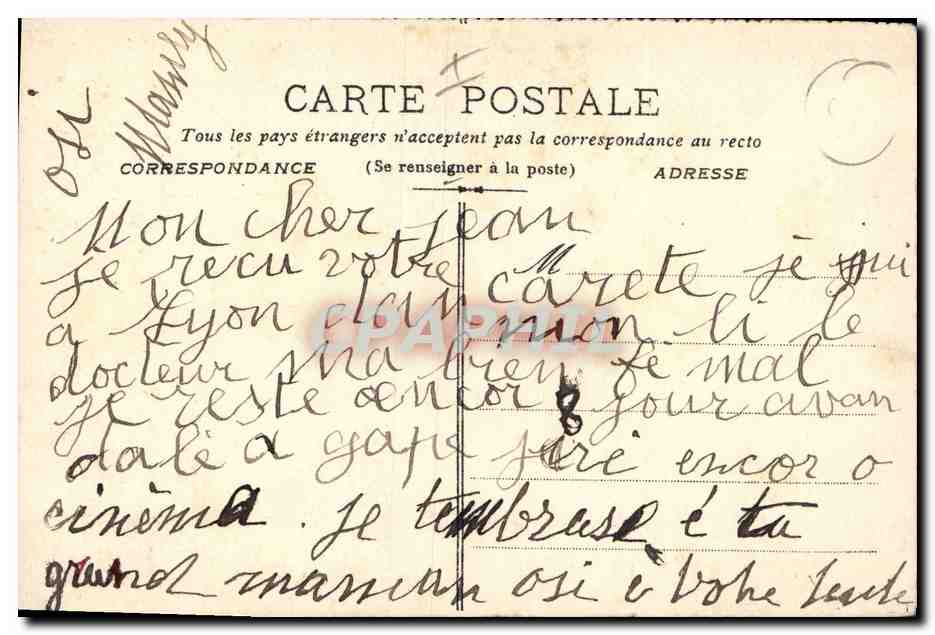 osi Mansy
CARTE POSTALE
Tous les pays étrangers n'acceptent pas la correspondance au recto
CORRESPONDANCE (Se renseigner à la poste) ADRESSE
Mon cher jean
je recu votre carete je sui
a Lyon dan mon li le
docteur ma bien fé mal
je reste encor 8 jour avan
dalé a gape jiré encor o
cinèma. je tembrase é ta
grand maman osi é votre
CPAPHIL